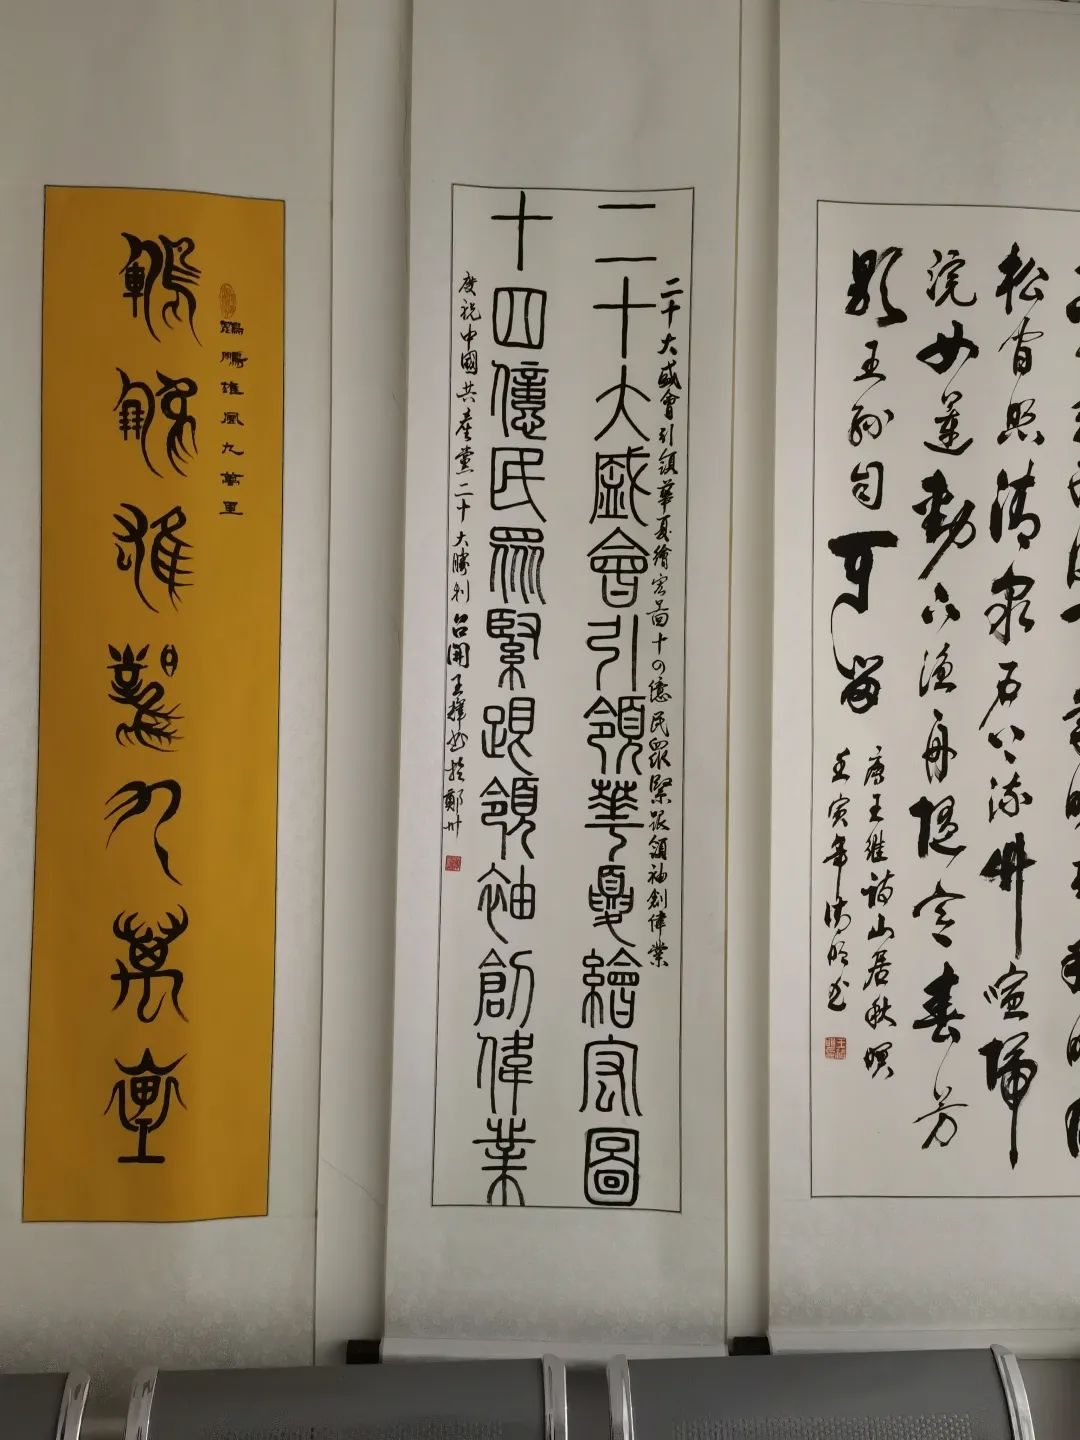 松間照清泉石上流竹喧歸
浣女蓮動下漁舟隨意春芳
歇王孫自可留
唐王維詩山居秋暝
壬寅年
二十大盛會引領華夏繪宏圖十四億民眾緊跟領袖創偉業
二十大盛會引領華夏繪宏圖
十四億民眾緊跟領袖創偉業
慶祝中國共產黨二十大勝利召開王書於鄭州
鵬雄風九萬里
鶤鵬雄風九萬里